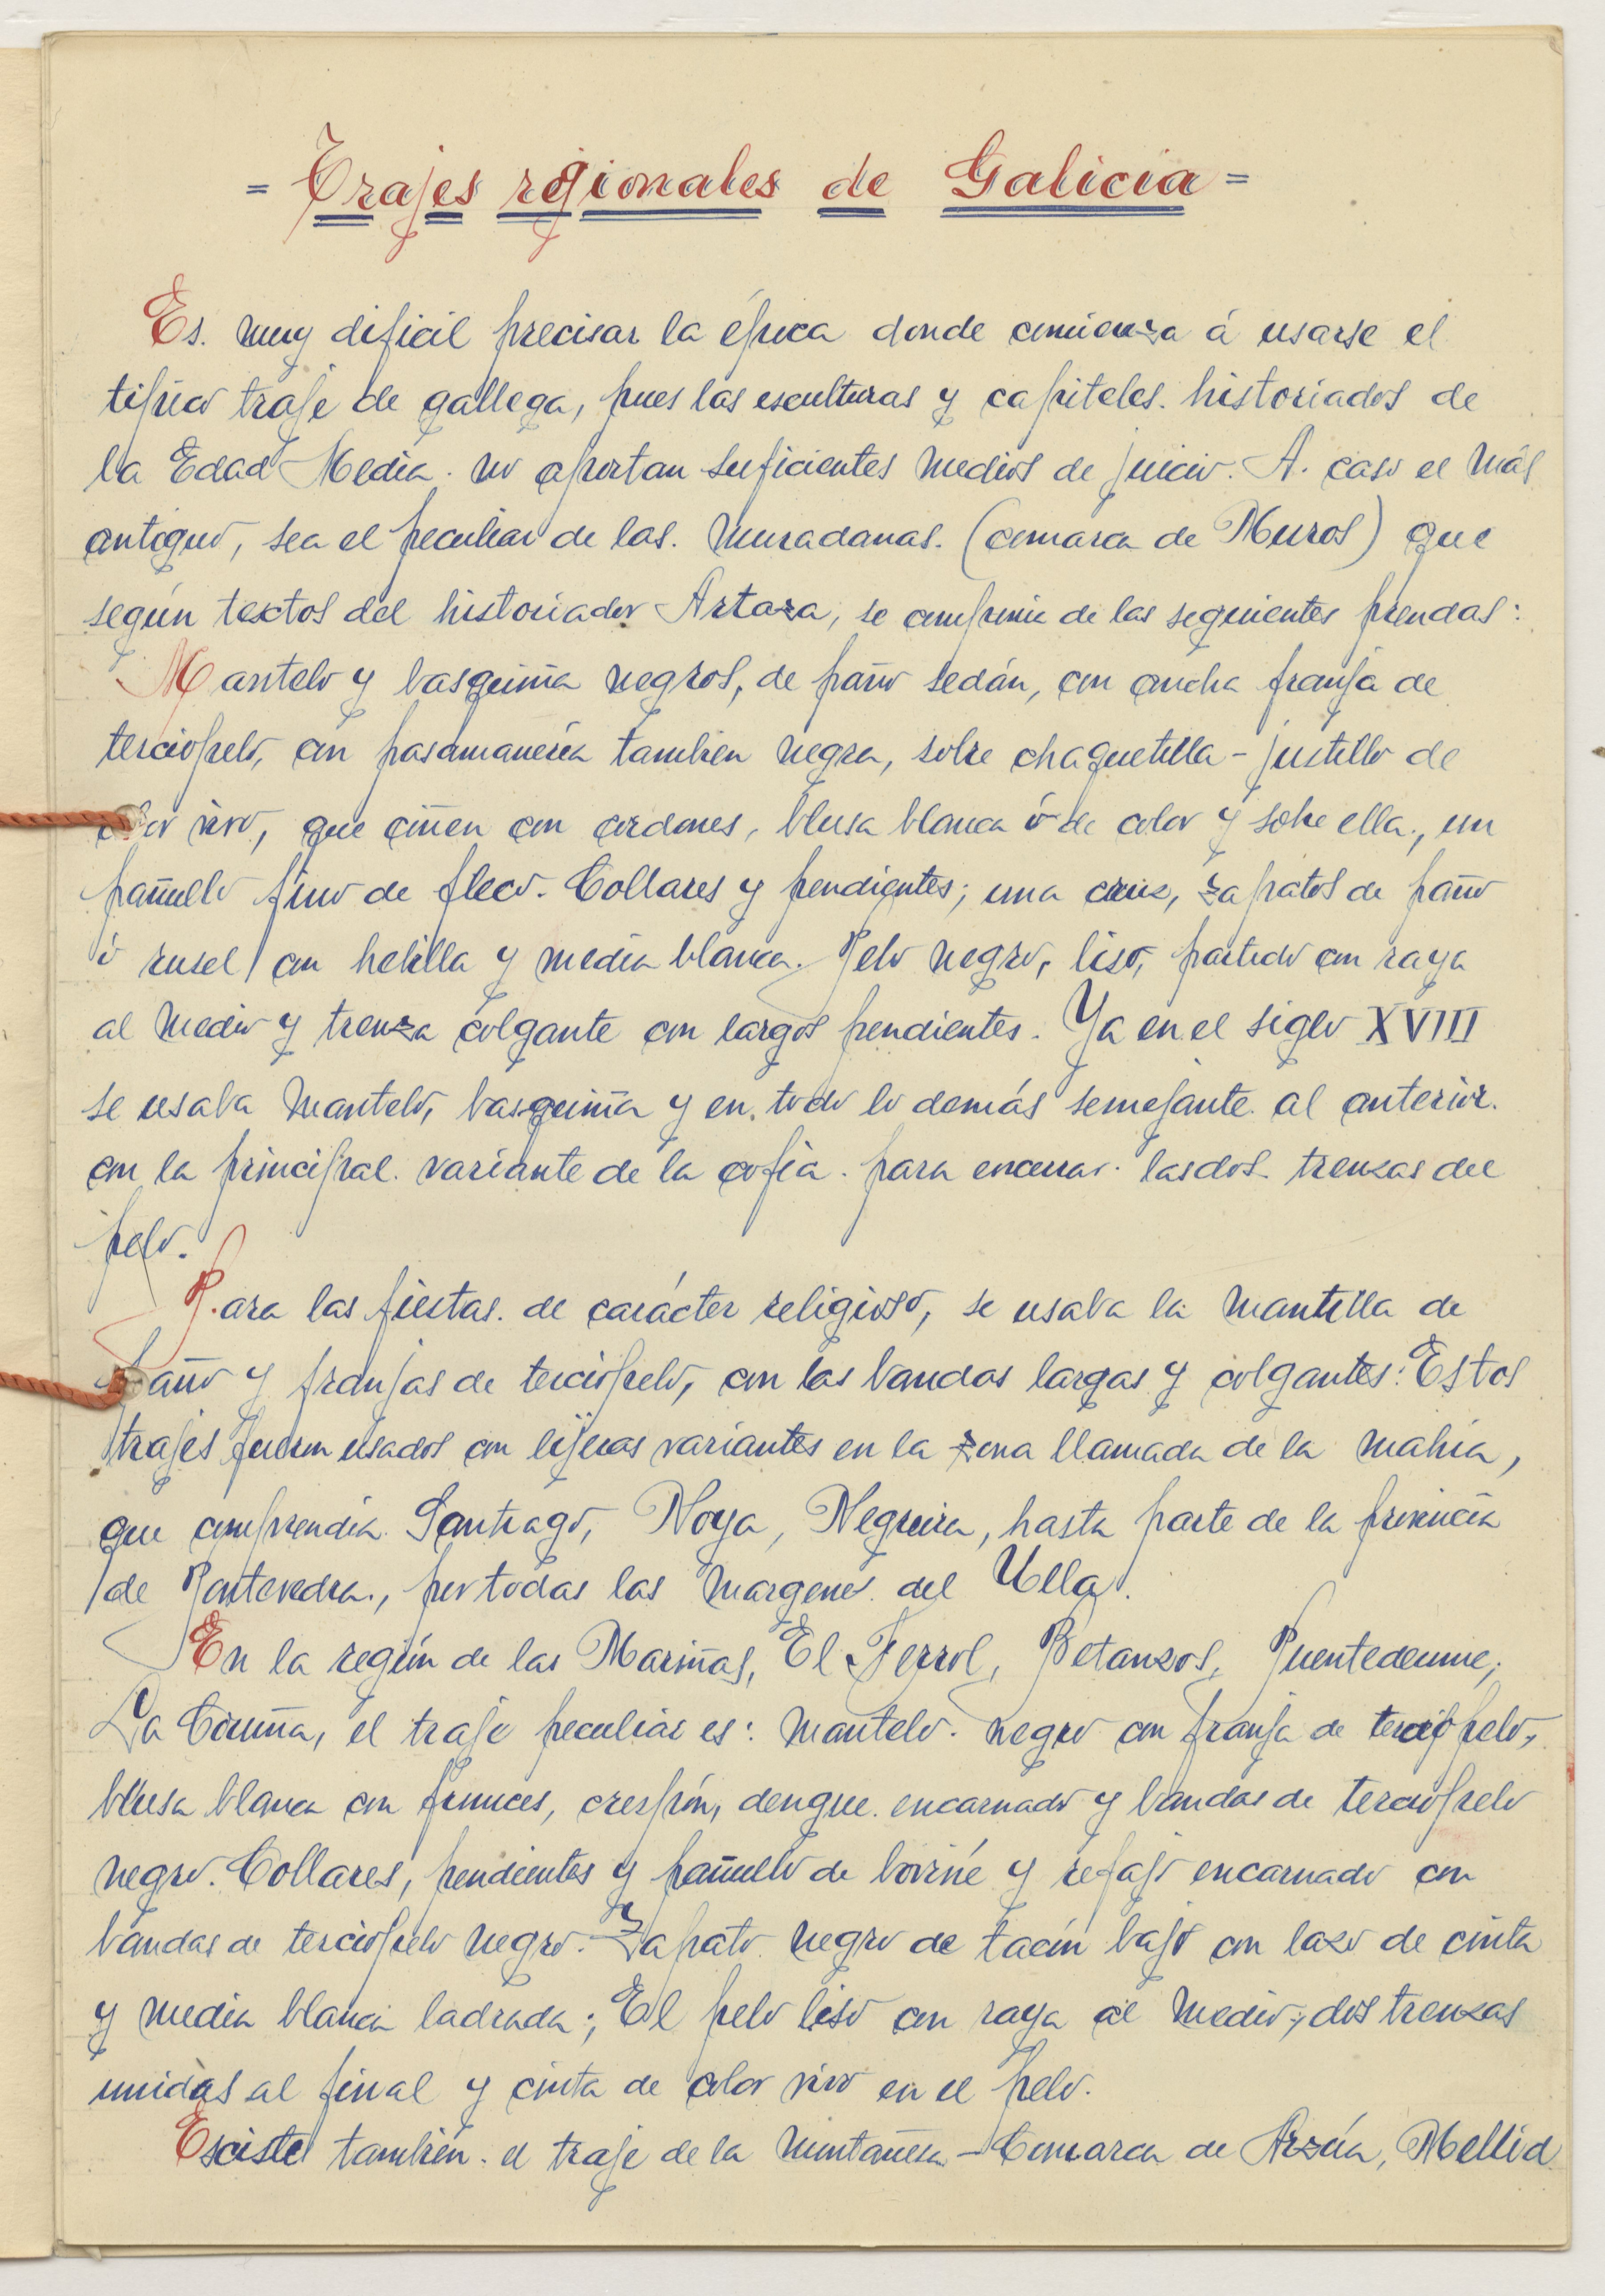 = Trajes regionales de Galicia =
Es. muy dificil precisar la época donde comienza á usarse el
tipico traje de gallega, pues las esculturas y capiteles. historiados de
la Edad Media. no aportan suficientes medios de juicio. A. caso el más
antiguo, sea el peculiar de las. muradanas. (comarca de Muros) que
según textos del historiador Artaza, se compone de las siguientes prendas:
Mantelo y basquiña negros, de paño sedán, con ancha franja de
terciopelo, con pasamanería tambien negra, sobre chaquetilla - justillo de
color vivo, que ciñen con cordones, blusa blanca ó de color y sobre ella., un
pañuelo fino de fleco. Collares y pendientes; una cruz, zapatos de paño
ó rusel con hebilla y media blanca. Pelo negro, liso, partido con raya
al medio y trenza colgante con largos pendientes. Ya en el siglo XVIII
se usaba mantelo, basquiña y en. todo lo demás semejante. al anterior.
con la principal. variante de la cofia. para encerrar. las dos trenzas del
pelo.
Para las fiestas. de carácter religioso, se usaba la mantilla de
paño y franjas de terciopelo, con las bandas largas y colgantes: Estos
trajes fueron usados con lijeras variantes en la zona llamada de la mahia,
que comprendía Santiago, Noya, Negreira, hasta parte de la provincia
de Pontevedra., por todas las margenes del Ulla.
En la región de las Mariñas, El Ferrol, Betanzos, Puentedeume,
La Coruña, el traje peculiar es: mantelo. negro con franja de terciopelo,
blusa blanca con frunces, crespón, dengue. encarnado y bandas de terciopelo
negro. Collares, pendientes y pañuelo de boviné y refajo encarnado con
bandas de terciopelo negro. Zapato negro de tacón bajo con lazo de cinta
y media blanca ladrada; El pelo liso con raya al medio; dos trenzas
unidas al final y cinta de color vivo en el pelo.
Esciste también. el traje de la montañesa - Comarca de Arzúa, Mellid